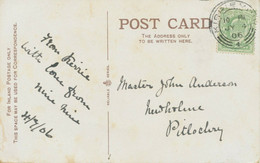 POST CARD
THE ADDRESS ONLY
TO BE WRITTEN HERE.
FOR INLAND POSTAGE ONLY
THIS SPACE MAY BE USED FOR CORRESPONDENCE.
with love from
06
Master John Anderson
Newholme
Pitlochry